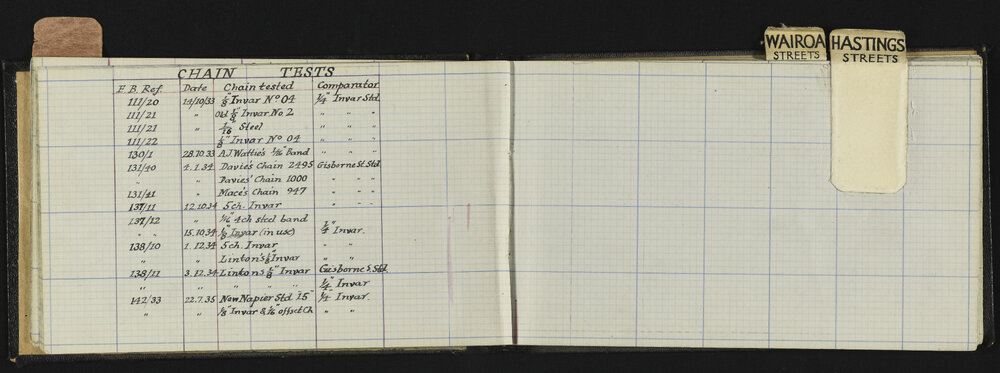 CHAIN TESTS
F.B. Ref. Date Chain tested Comparator
111/20 14/10/33 1/8" Invar No 04 1/4" Invar Std.
111/21 " Old 1/4" Invar No 2 " " "
111/21 " 1/16 Steel " " "
111/22 " 1/8" Invar No 04 " " "
130/1 28.10.33 A J Wattie's 1/16" Band " " "
131/40 4.1.34 Davie's Chain 2495 Gisborne St. Std
" " Davies' Chain 1000 " " "
131/41 " Mace's Chain 947 " " "
137/11 12.10.34 5ch. Invar " " "
137/12 " 1/16" 4ch steel band
" " 15.10.34 1/8" Invar (in use) 1/4" Invar.
138/10 1.12.34 5ch. Invar " "
" " Linton's 1/8" Invar " "
138/11 3.12.34 Linton's 1/8" Invar Gisborne S. Std.
" " " " " 1/4" Invar
142/33 22.7.35 New Napier Std "15" 1/4" Invar.
" " 1/8" Invar & 1/16" offset Ch " "
WAIROA
STREETS
HASTINGS
STREETS